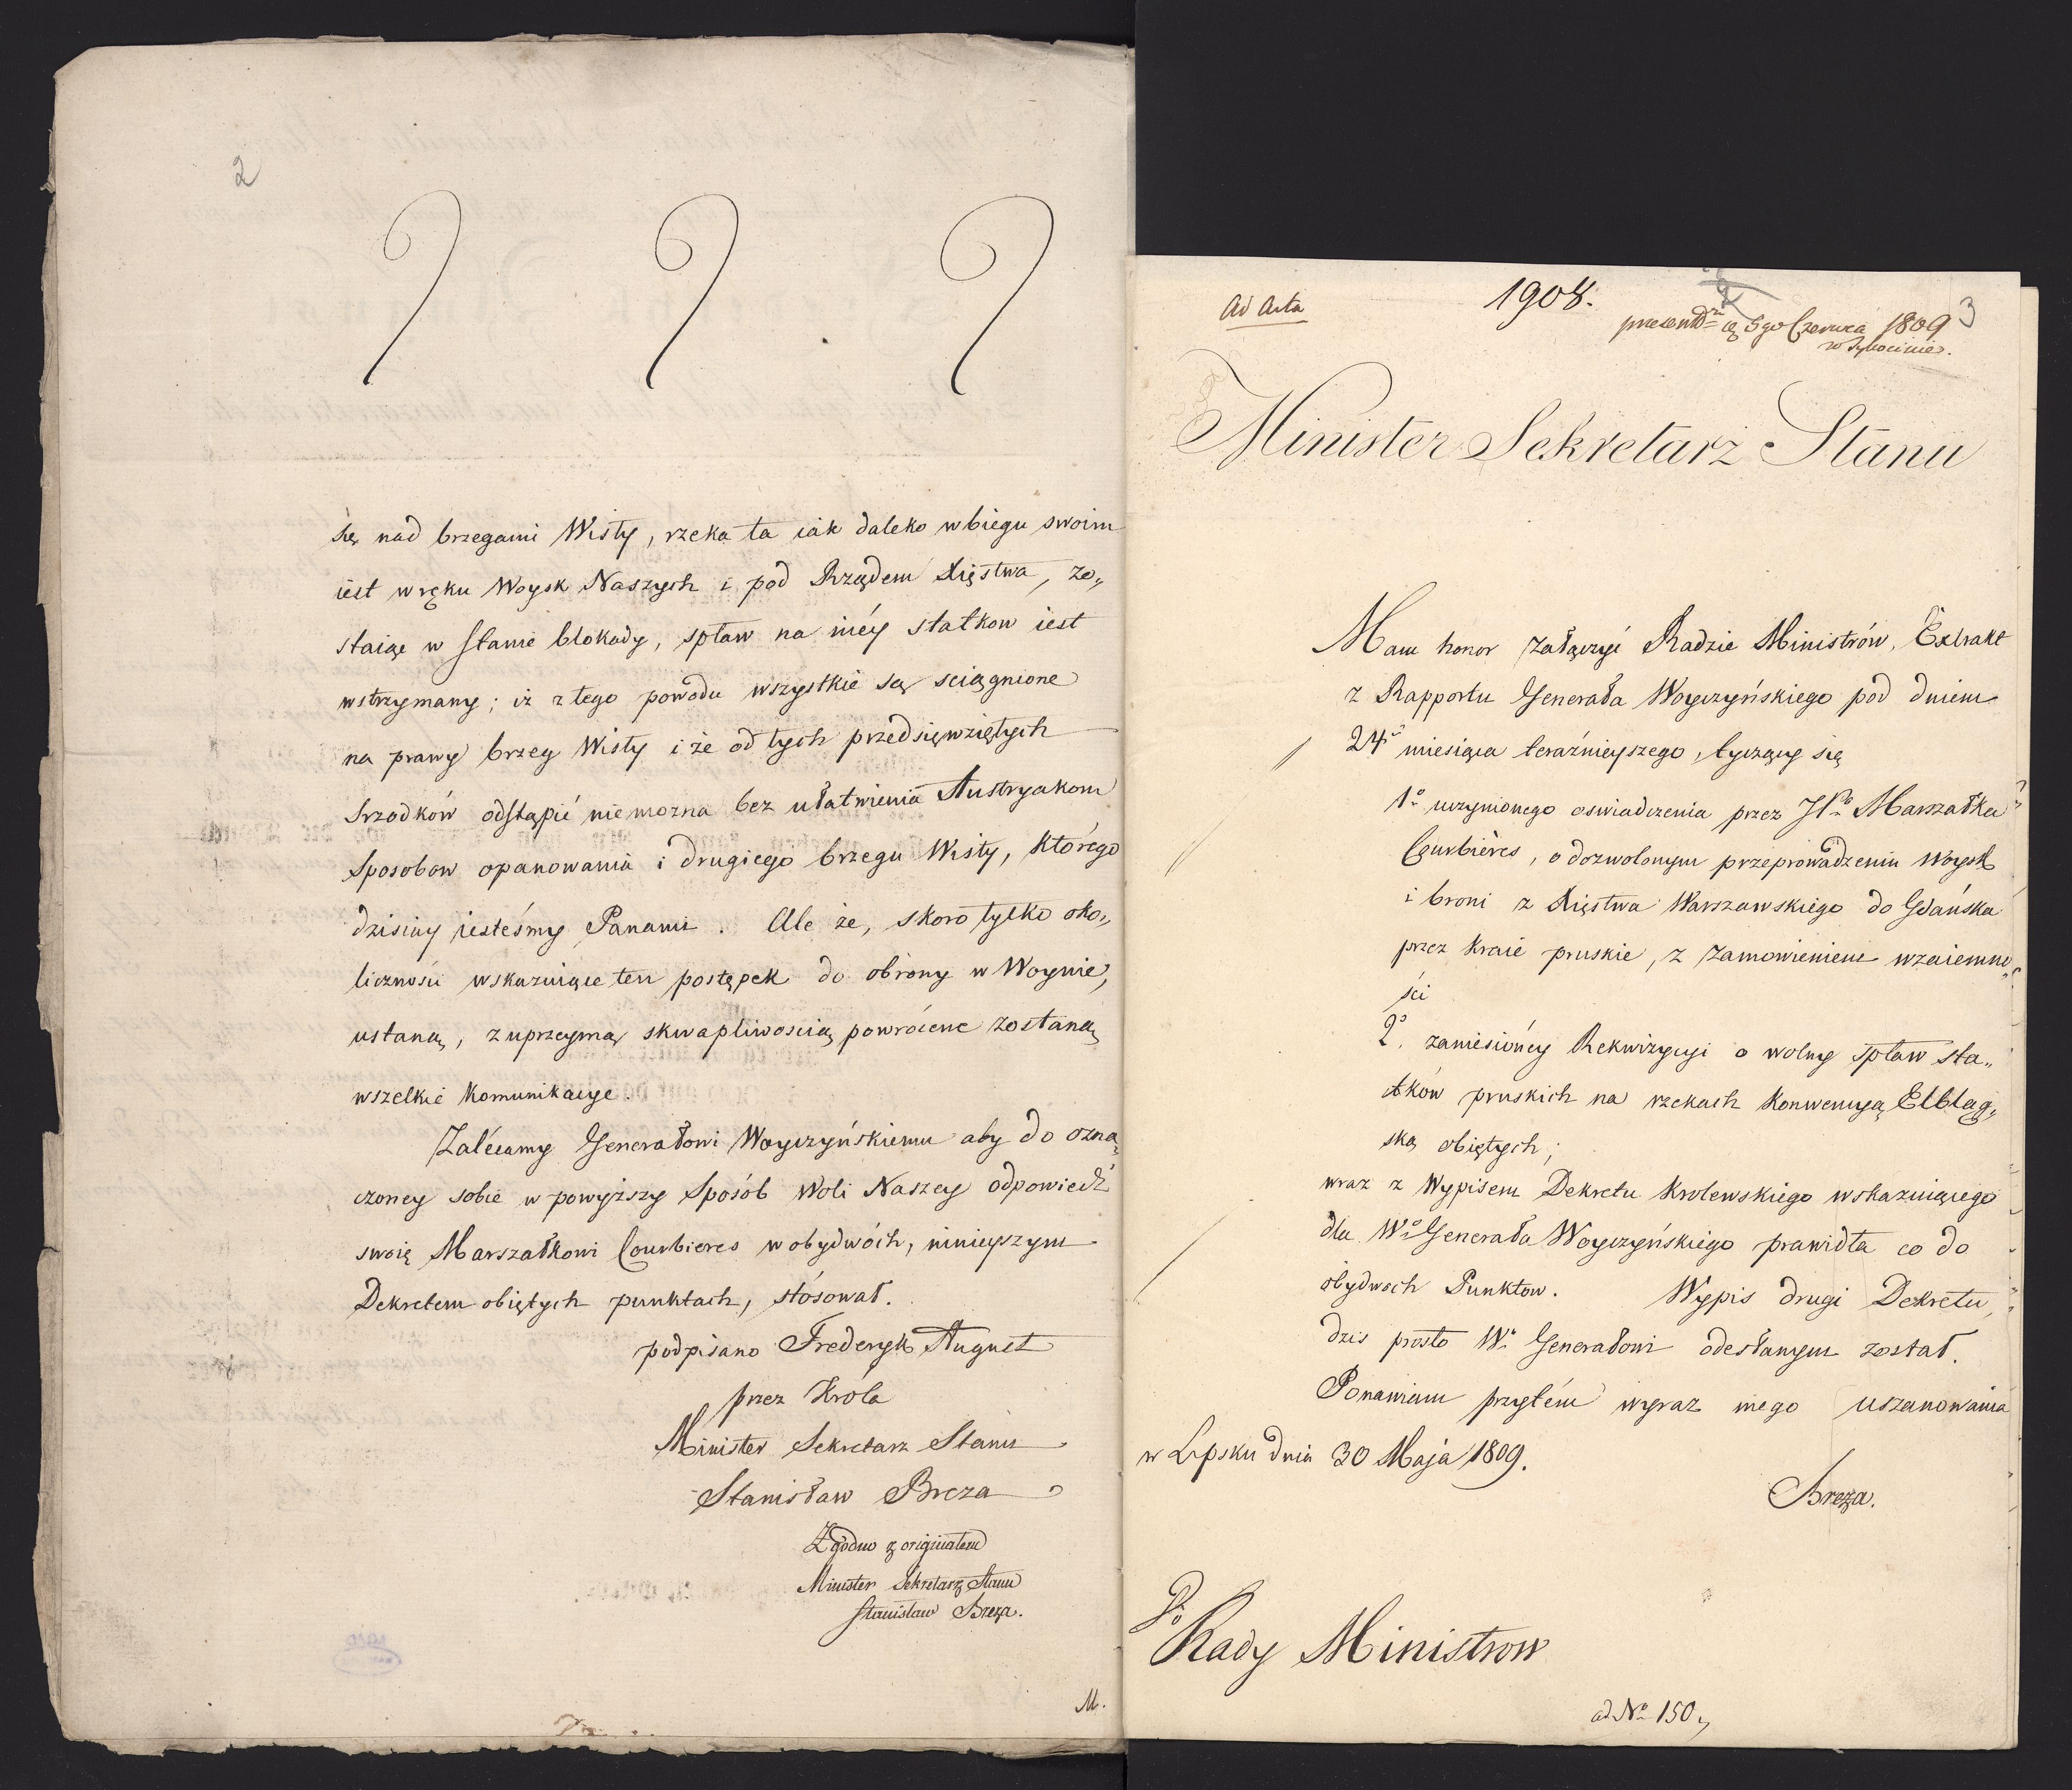 2
się nad brzegami Wisły, rzeka ta iak daleko w biegu swoim
iest w ręku Woysk Naszych i pod Rządem Xięstwa, zo„
staiąc w stanie blokady, spław na niéy statkow iest
wstrzymany; iż z tego powodu wszystkie są sciągnione
na prawy brzeg Wisły i że od tych przedsięwziętych
srzodków odstąpić nie można bez ułatwienia Austryakom
sposobow opanowania i drugiego brzegu Wisły, którego
dzisiay iesteśmy Panami. Ale że, skoro tylko oko„
liczności wskazuiące ten postępek do obrony w Woynie,
ustaną, z uprzeymą skwapliwoscią powrócone zostaną
wszelkie Komunikacye.
Zalécamy Generałowi Woyczyńskiemu aby do ozna„
czoney sobie w powyższy Sposób Woli Naszey odpowiedź
swoię Marszałkowi Courbieres w obydwóch, ninieyszym
Dekretem obiętych punktach, stósował.
podpisano Frederyk August
przez Króla
Minister Sekretarz Stanu
Stanisław Breza
Zgodno z originałem
Minister Sekretarz Stanu
Stanisław Breza.
M.
Ad Acta
1908.
3
presentd= 5go Czerwca 1809
w Tykocinie.
Minister Sekretarz Stanu
Mam honor załączyć Radzie Ministrów, Extrakt
z Rapportu Generała Woyczyńskiego pod dniem
24o miesiąca teraźnieyszego, tyczący się
1o uczynionego oswiadczenia przez JPo Marszałka
Courbières, o dozwolonym przeprowadzeniu Woysk
i broni z Xięstwa Warszawskiego do Gdańska
przez Kraie pruskie, z zamowieniem wzaiemno„
ści
2o zaniesióney Rekwizycyi o wolny spław sta„
tków pruskich na rzekach Konwencyą Elbląg„
ską obiętych;
wraz z Wypisem Dekretu Krolewskiego wskazuiącego
dla Wo Generała Woyczyńskiego prawidła co do
obydwoch Punktow. Wypis drugi Dekretu,
dzis prosto Wu Generałowi odesłanym został.
Ponawiam przytém wyraz mego uszanowania
w Lipsku dnia 30 Maja 1809.
Breza.
Do
Rady Ministrow
ad No 150,